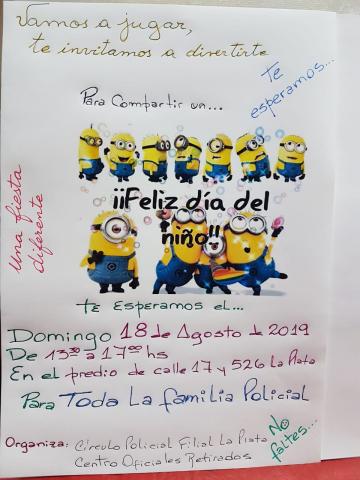 Vamos a jugar,
te invitamos a divertirte
Te
esperamos...
Para Compartir un...
¡¡Feliz día del
niño!!
Una fiesta
diferente
Te Esperamos el...
Domingo 18 de Agosto de 2019
De 13³⁰ a 17⁰⁰ hs
En el predio de calle 17 y 526 La Plata
Para Toda La Familia Policial
No
faltes...
Organiza: Círculo Policial Filial La Plata
Centro Oficiales Retirados